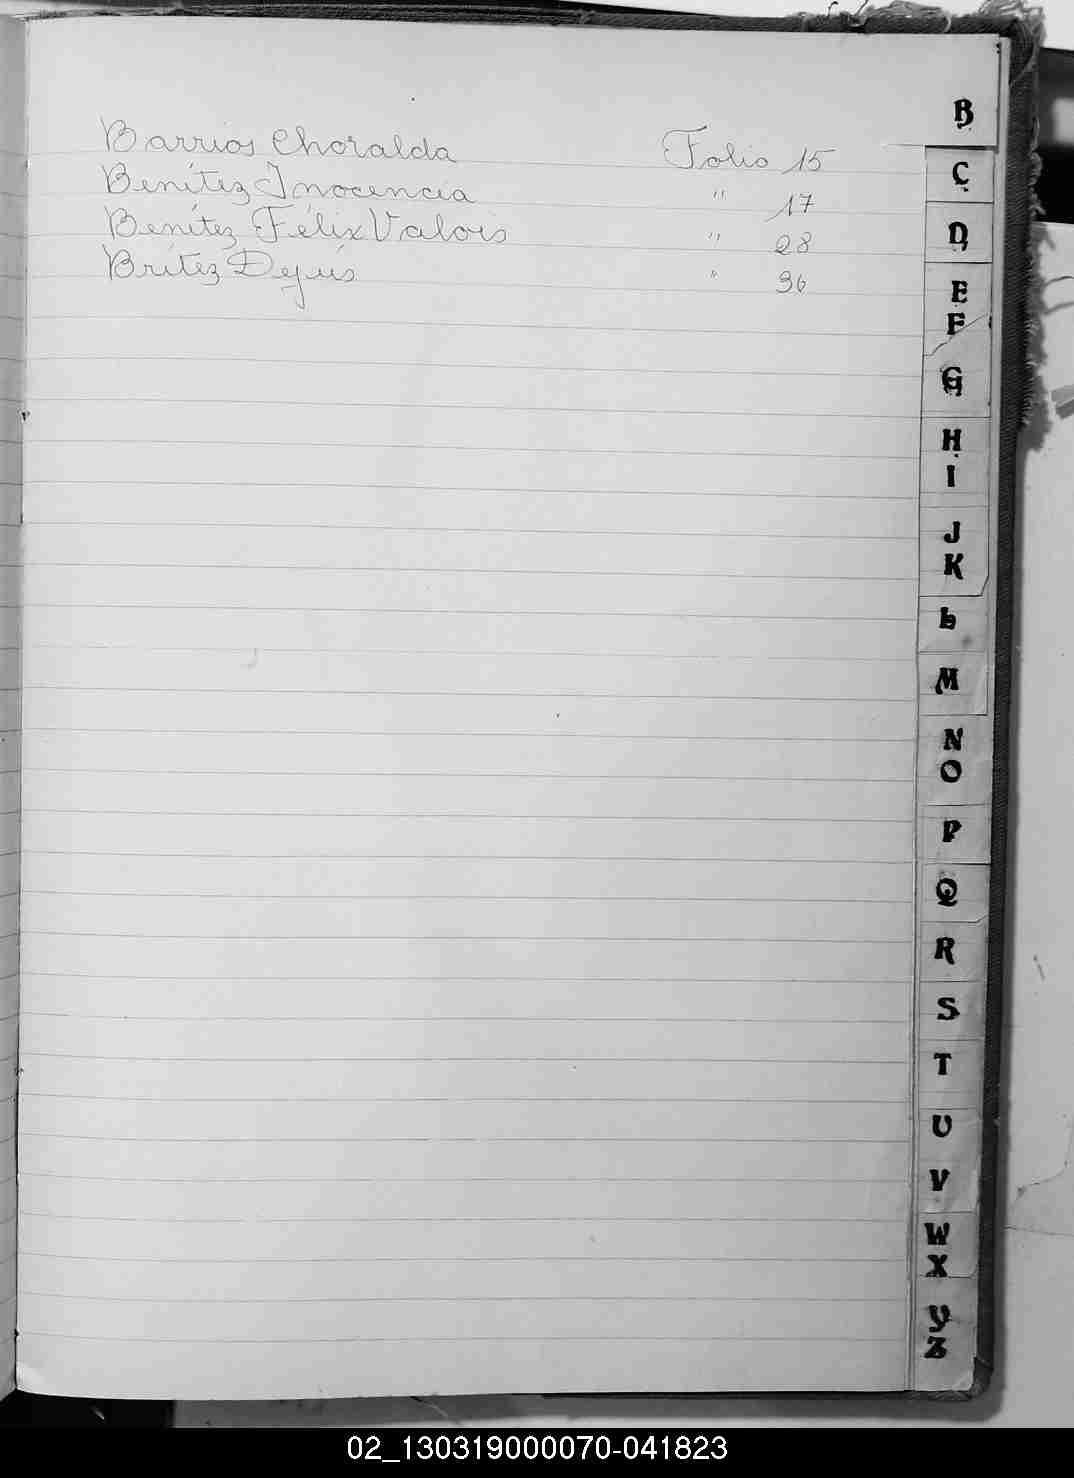 Barrios Choralda Folio 15
Benítez Inocencia " 17
Benítez Félix Valois " 28
Brítez Dejús " 36
B
C
D
E
F
G
H
I
J
K
L
M
N
O
P
Q
R
S
T
U
V
W
X
Y
Z
02_130319000070-041823